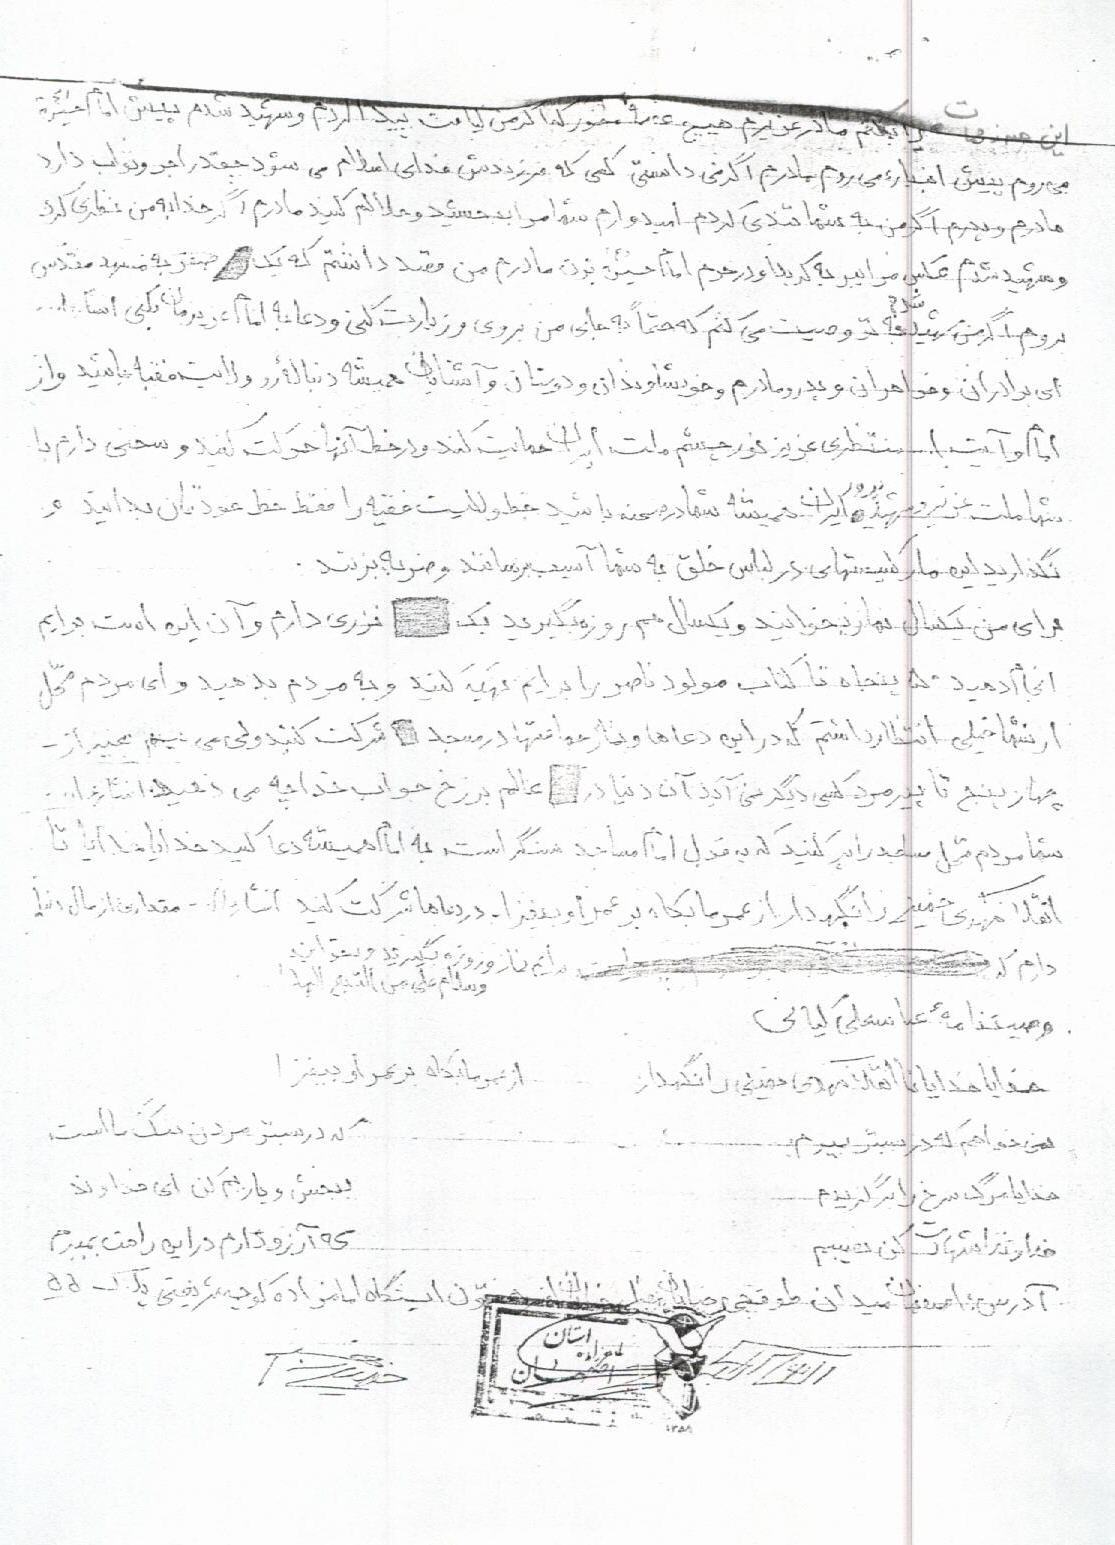 این را بکنم مادر عزیزم هیچ غصه مخور که اگر من لیاقت پیدا کردم و شهید شدم پیش امام حسین
می روم پیش انبیاء می روم مادرم اگر می دانستی کسی که فرزندش فدای اسلام می شود چقدر اجر و ثواب دارد
مادرم و پدرم اگر من به شما تندی کردم امیدوارم شما مرا ببخشید و حلالم کنید مادرم اگر خدا به من نظری کرد
و شهید شدم عکس مرا ببر به کربلا و در حرم امام حسین بزن مادرم من قصد داشتم که یک سفر به مشهد مقدس
بروم اگر من شهید شدم به تو وصیت می کنم که حتماً به جای من بروی و زیارت کنی و دعا به امام عزیزمان بکنی انشاءا...
ای برادران و خواهران و پدر و مادرم و خویشاوندان و دوستان و آشنایان همیشه دنباله رو ولایت فقیه باشید و از
امام و آیت ا... منتظری عزیز نور چشم ملت ایران حمایت کنید و در خط آنها حرکت کنید و سخنی دارم با
شما ملت عزیز و شهیدپرور ایران همیشه شما در صحنه باشید خط ولایت فقیه را فقط خط خودتان بدانید و
نگذارید این مارکسیستهای در لباس خلق به شما آسیب برسانند و ضربه بزنند.
برای من یکسال نماز بخوانید و یکسال هم روزه بگیرید یک نذری دارم و آن این است برایم
انجام دهید که پنجاه تا کتاب مولود ناصر را برایم تهیه کنید و به مردم بدهید و ای مردم محل
از شما خیلی انتظار داشتم که در این دعاها و نماز جماعتها در مسجد شرکت کنید ولی می بینم بجز از
چهار پنج تا پیرمرد کسی دیگر نمی آید آن دنیا در عالم برزخ جواب خدا چه می دهید انشاءا...
شما مردم محل مساجد را پر کنید که به قول امام مساجد سنگر است به امام همیشه دعا کنید خدایا خدایا تا
انقلاب مهدی خمینی را نگهدار از عمر ما بکاه بر عمر او بیفزا. در دعاها شرکت کنید انشاءا... مقداری از مال دنیا
دارم که برایم نماز و روزه بگیرید و بخوانید
وسلام علی من التبع الهدا
وصیتنامهٔ عباسعلی کیانی
خدایا خدایا تا انقلاب مهدی خمینی را نگهدار از عمر ما بکاه بر عمر او بیفزا
نمی خواهم که در بستر بمیرم که در بستر مردن ننگ ما است
خدایا مرگ سرخ را برگزیدم ببخش و یاریم کن ای خداوند
خداوندا شهادت کن نصیبم که آرزو دارم در این راهت بمیرم
آدرس: اصفهان میدان طوقچی خیابان ایستگاه امامزاده کوچه پلاک ۵۵
استان
اصفهان
۱۳۵۸